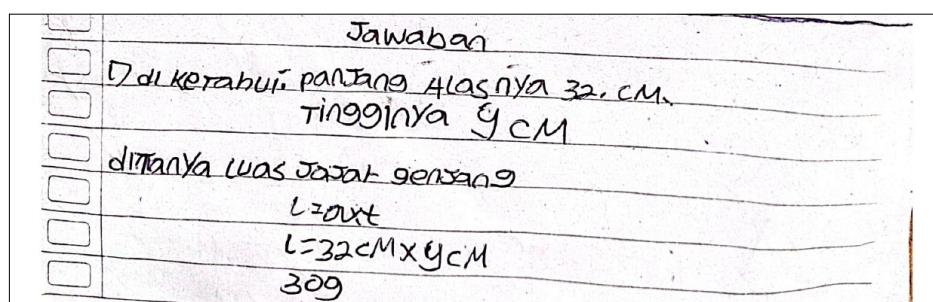 Jawaban
1) diketahui: panjang Alasnya 32. cM.
Tingginya 9 cM
diTanya luas Jajar genjang
L=axt
L=32cM x 9cM
309